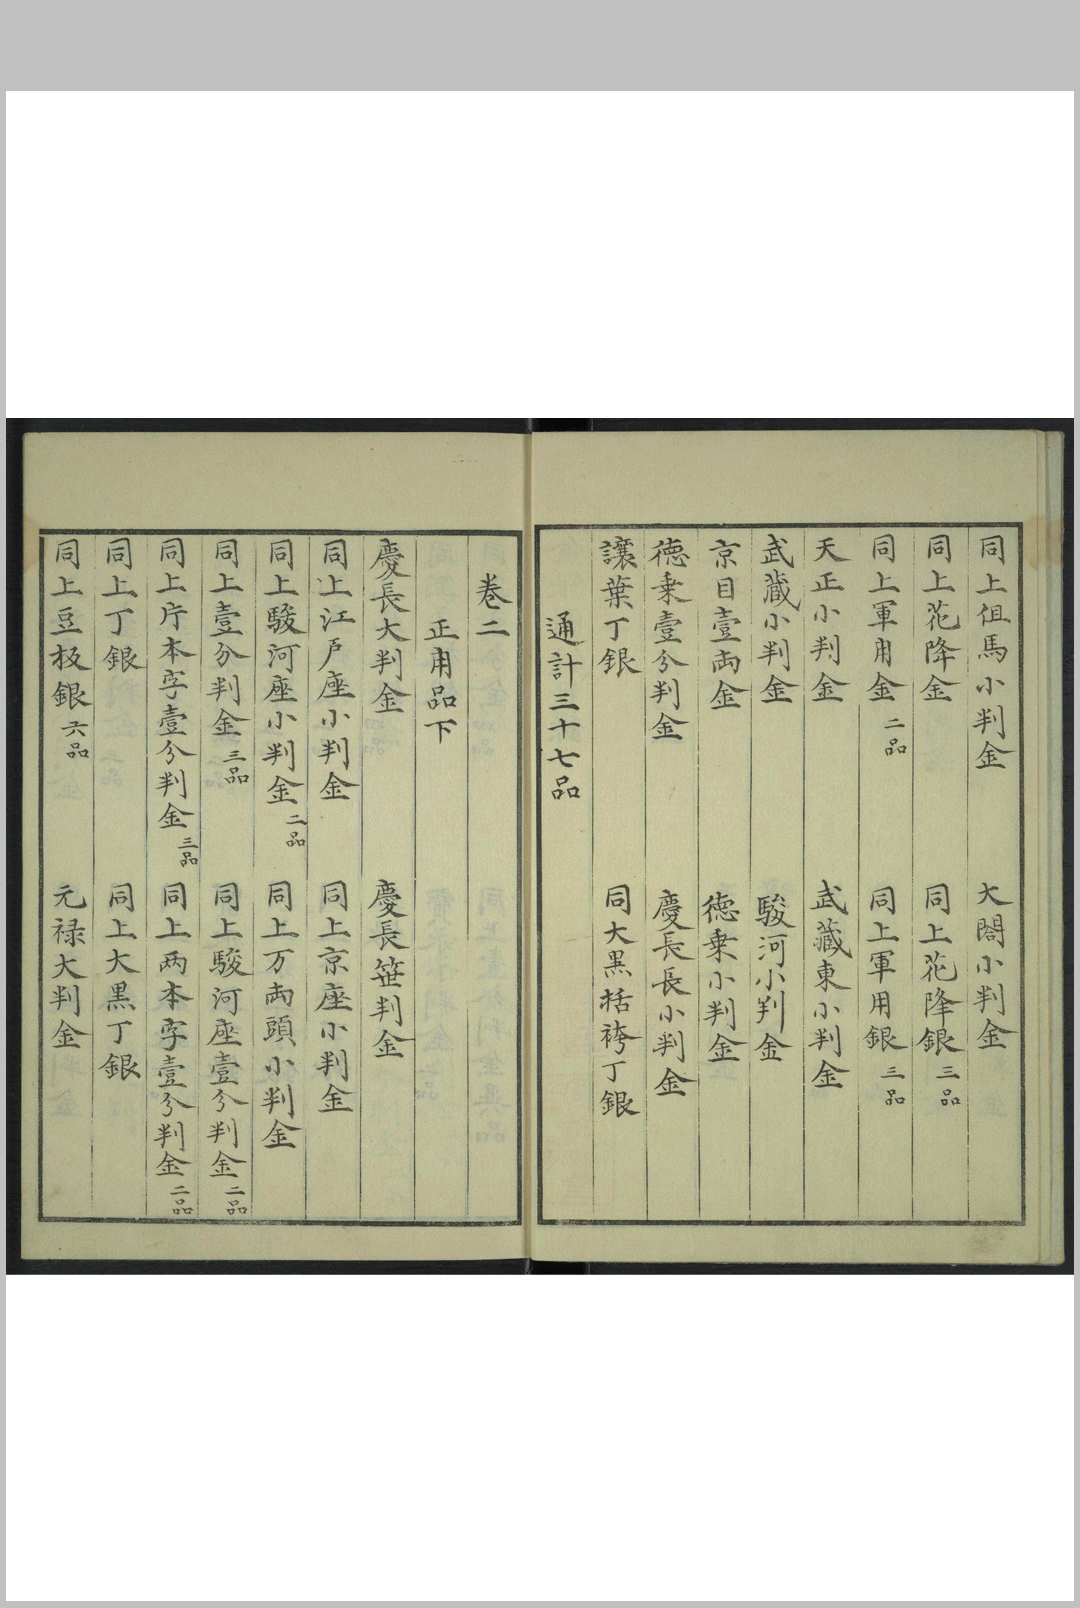 同上但馬小判金　大閤小判金
同上花降金　同上花降銀 三品
同上軍用金 二品　同上軍用銀 三品
天正小判金　武藏東小判金
武藏小判金　駿河小判金
京目壹両金　徳乗小判金
徳乗壹分判金　慶長長小判金
譲葉丁銀　同大黒括袴丁銀
通計三十七品
巻二
正用品下
慶長大判金　慶長笹判金
同上江戸座小判金　同上京座小判金
同上駿河座小判金 二品　同上万両頭小判金
同上壹分判金 三品　同上駿河座壹分判金 二品
同上片本字壹分判金 三品　同上両本字壹分判金 二品
同上丁銀　同上大黒丁銀
同上豆板銀 六品　元禄大判金